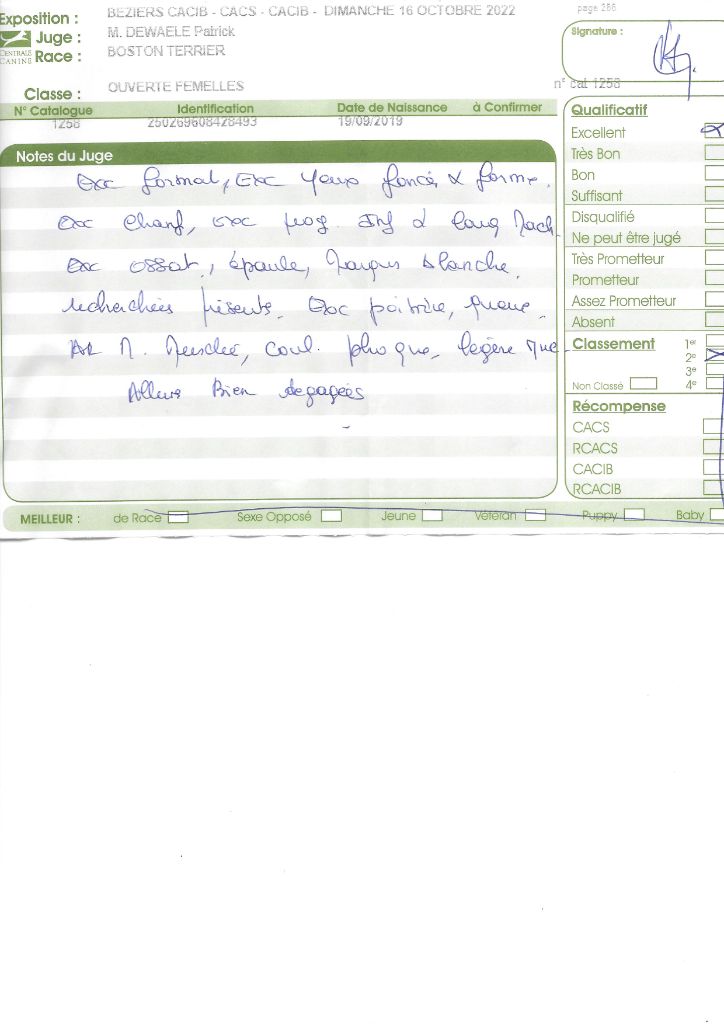 Exposition : BEZIERS CACIB - CACS - CACIB - DIMANCHE 16 OCTOBRE 2022
page 286
CENTRALE CANINE
Juge : M. DEWAELE Patrick
Race : BOSTON TERRIER
Signature :
Classe : OUVERTE FEMELLES
n° cat 1258
N° Catalogue Identification Date de Naissance à Confirmer
1258 250269608428493 19/09/2019
Notes du Juge
Exc format, Exc yeux foncés & forme.
Exc chanf, exc mog. & long Mach
Exc ossat., épaule, Marques blanche
recherchées présents. Exc poitrine, queue.
AR M. Musclé, coul. phoque, légère
Allures Bien dégagées
Qualificatif
Excellent
Très Bon
Bon
Suffisant
Disqualifié
Ne peut être jugé
Très Prometteur
Prometteur
Assez Prometteur
Absent
Classement 1er
2e
3e
Non Classé 4e
Récompense
CACS
RCACS
CACIB
RCACIB
MEILLEUR : de Race Sexe Opposé Jeune Vétéran Puppy Baby